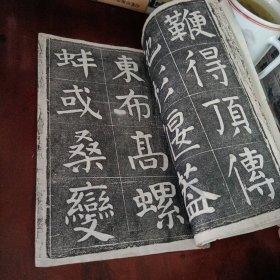 鞭得頂傳
東布高螺
蚌或桑變